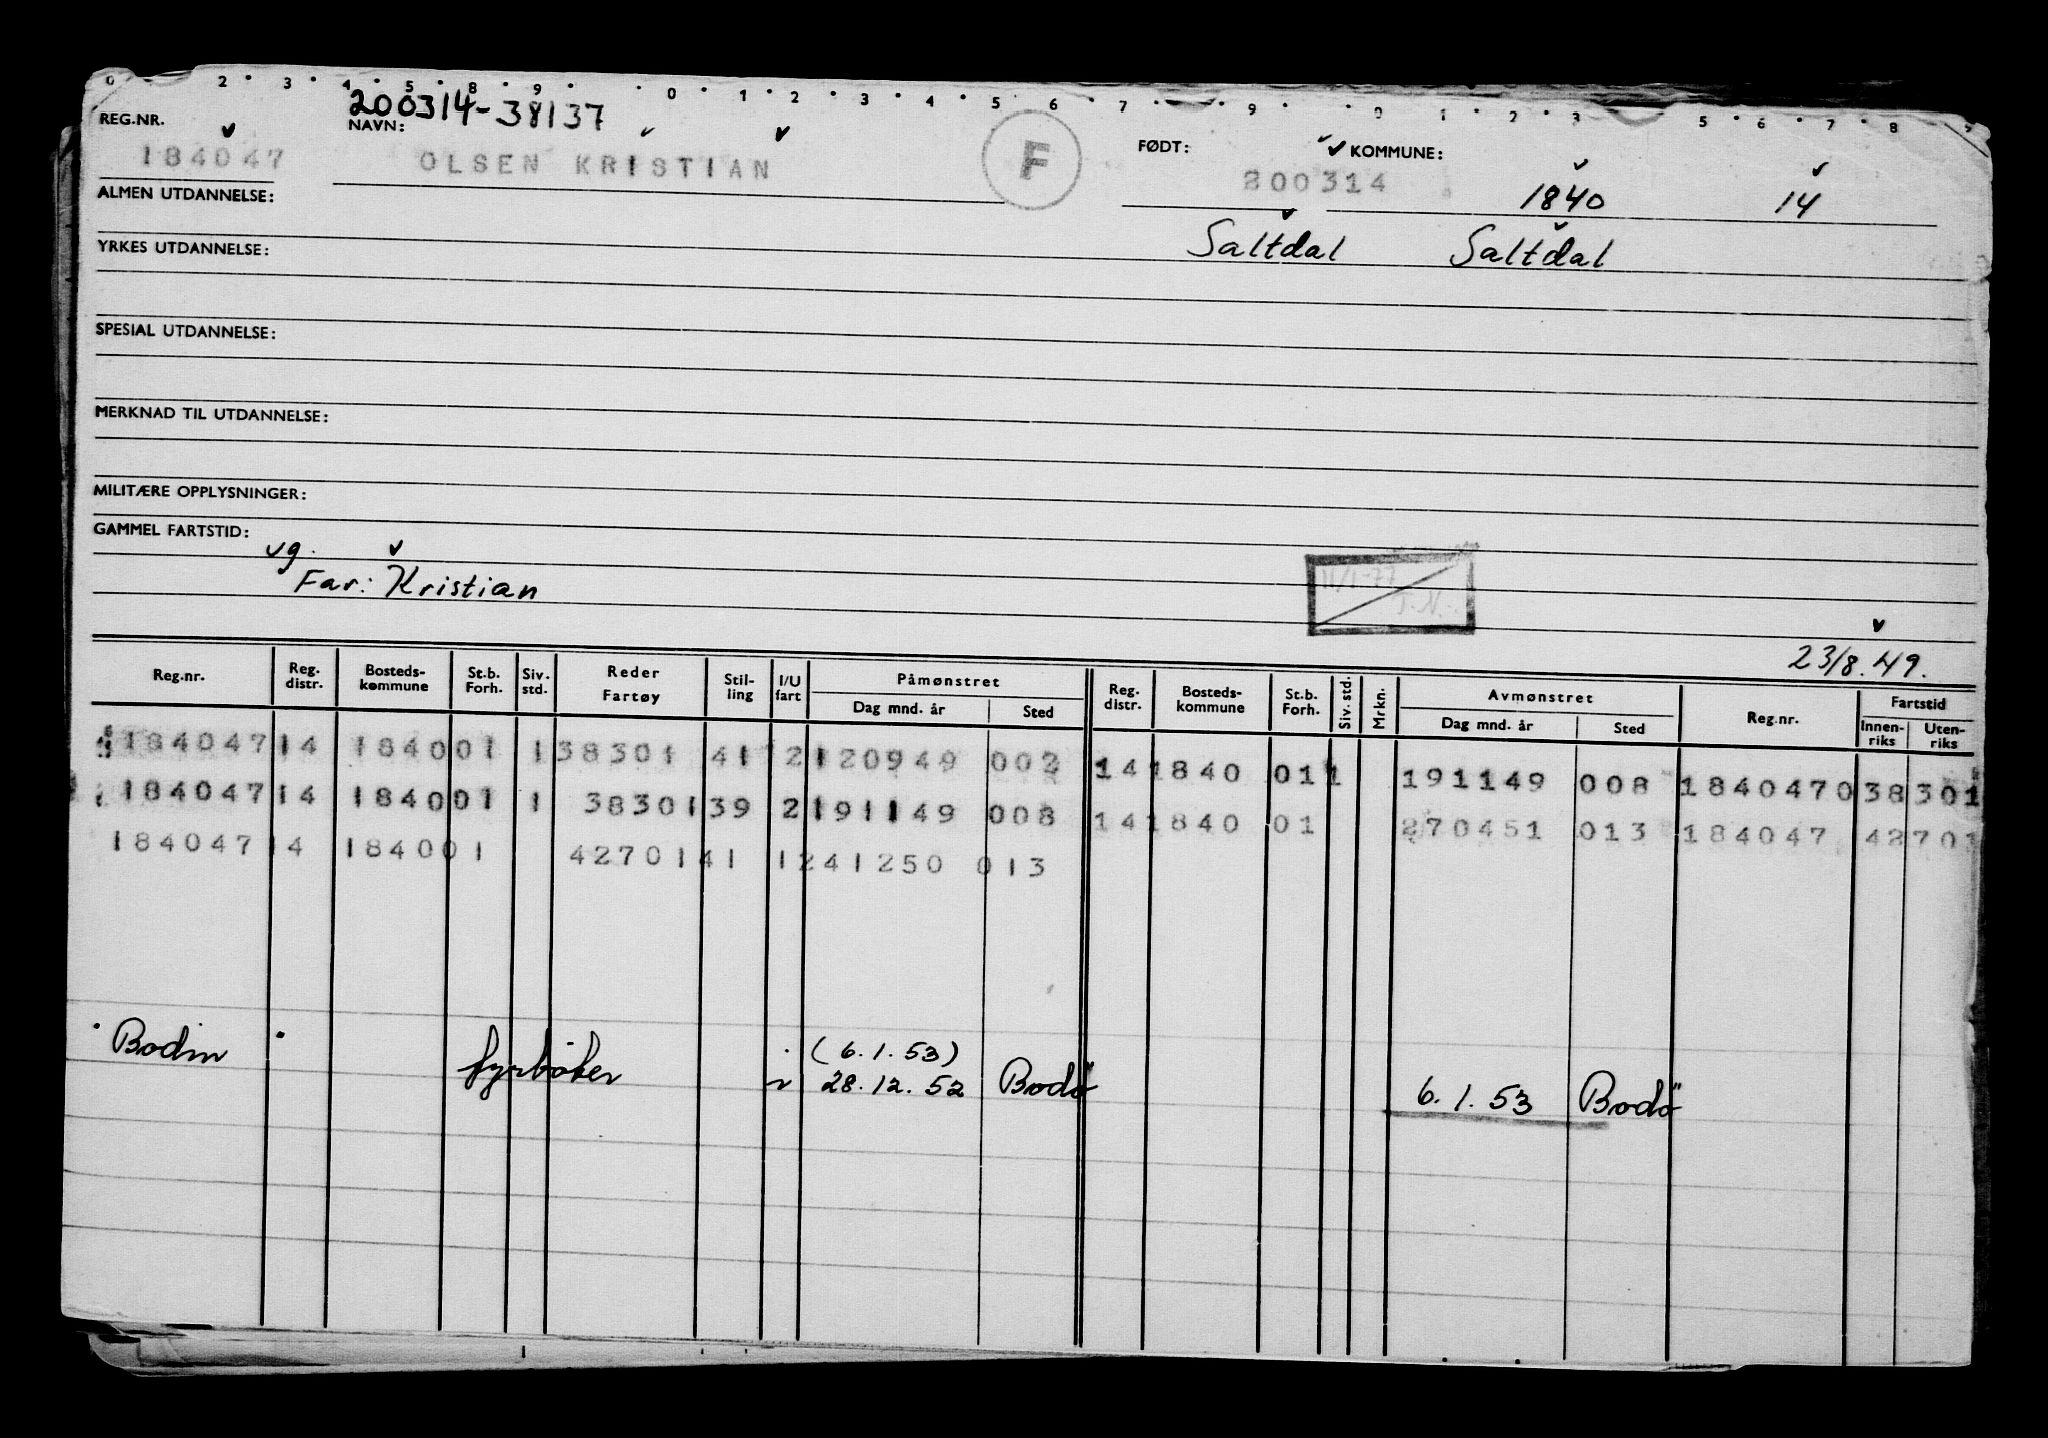 0 2 3 4 5 8 9 0 1 2 3 4 5 6 7 9 0 1 2 3 5 6 7 8 9
200314-38137
REG.NR. NAVN: FØDT: KOMMUNE:
184047 OLSEN KRISTIAN F 200314 1840 14
ALMEN UTDANNELSE:
Saltdal Saltdal
YRKES UTDANNELSE:
SPESIAL UTDANNELSE:
MERKNAD TIL UTDANNELSE:
MILITÆRE OPPLYSNINGER:
GAMMEL FARTSTID:
vg.
Far: Kristian
11/1-77
T.N.
23/8.49.
Reg.nr. Reg. distr. Bosteds-kommune St.b. Forh. Siv. std. Reder Fartøy Stil-ling I/U fart Påmønstret Dag mnd. år Sted Reg. distr. Bosteds-kommune St.b. Forh. Siv. std. Mrkn. Avmønstret Dag mnd. år Sted Reg.nr. Fartstid Innen-riks Uten-riks
184047 14 1840 01 1 38301 41 2 120949 002 14 1840 01 1 191149 008 184047 0 38301
184047 14 1840 01 1 38301 39 2 191149 008 14 1840 01 270451 013 184047 42701
184047 14 1840 01 42701 41 1 241250 013
"Bodin" fyrbøter (6.1.53)
28.12.52 Bodö 6.1.53 Bodö